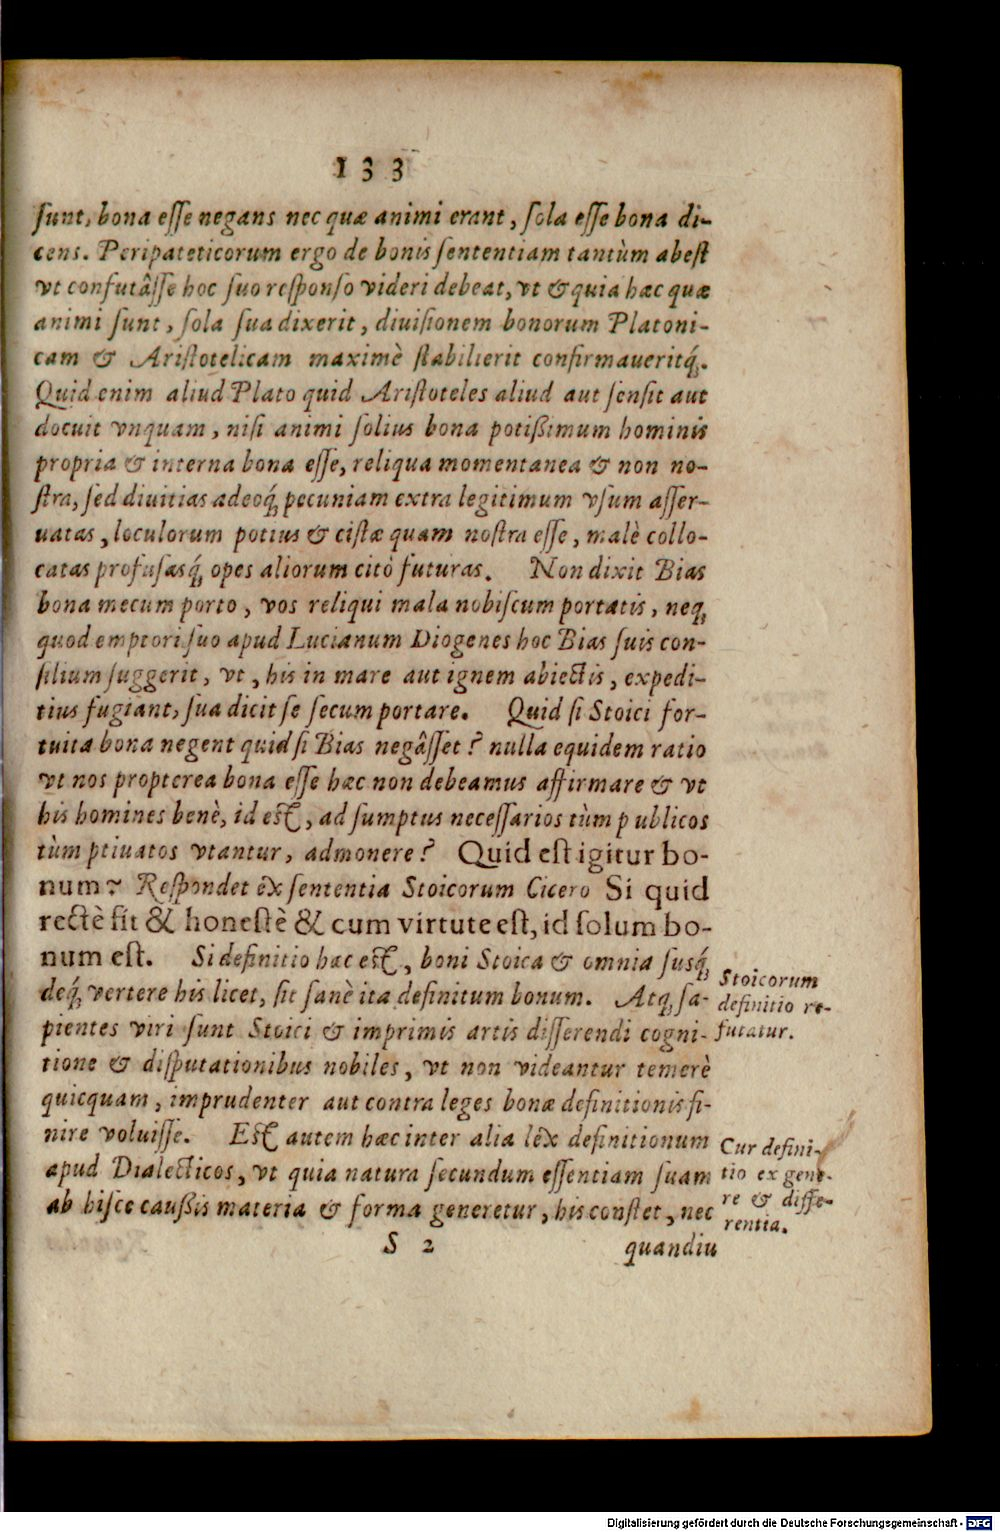 133
ſunt, bona eſſe negans nec quæ animi erant, ſola eſſe bona di-
cens. Peripateticorum ergo de bonis ſententiam tantùm abeſt
vt confutâſſe hoc ſuo reſponſo videri debeat, vt & quia hæc quæ
animi ſunt, ſola ſua dixerit, diuiſionem bonorum Platoni-
cam & Ariſtotelicam maximè ſtabilierit confirmaueritq́;.
Quid enim aliud Plato quid Ariſtoteles aliud aut ſenſit aut
docuit vnquam, niſi animi ſolius bona potißimum hominis
propria & interna bona eſſe, reliqua momentanea & non no-
ſtra, ſed diuitias adeoq́; pecuniam extra legitimum vſum aſſer-
uatas, loculorum potius & ciſtæ quam noſtra eſſe, malè collo-
catas profuſasq́; opes aliorum citò futuras. Non dixit Bias
bona mecum porto, vos reliqui mala nobiſcum portatis, neq;
quod emptori ſuo apud Lucianum Diogenes hoc Bias ſuis con-
ſilium ſuggerit, vt, his in mare aut ignem abiectis, expedi-
tius fugiant, ſua dicit ſe ſecum portare. Quid ſi Stoici for-
tuita bona negent quid ſi Bias negâſſet? nulla equidem ratio
vt nos propterea bona eſſe hæc non debeamus affirmare & vt
his homines benè, id eſt, ad ſumptus neceſſarios tùm p ublicos
tùm ptiuatos vtantur, admonere? Quid eſt igitur bo-
num? Reſpondet ex ſententia Stoicorum Cicero Si quid
rectè fit & honeſtè & cum virtute eſt, id ſolum bo-
num eſt. Si definitio hæc eſt, boni Stoica & omnia ſusq́;
deq́; vertere his licet, ſit ſanè ita definitum bonum. Atq; ſa-
pientes viri ſunt Stoici & imprimis artis diſſerendi cogni-
tione & diſputationibus nobiles, vt non videantur temerè
quicquam, imprudenter aut contra leges bonæ definitionis fi-
nire voluiſſe. Eſt autem hæc inter alia lex definitionum
apud Dialecticos, vt quia natura ſecundum eſſentiam ſuam
ab hiſce cauſsis materia & forma generetur, his conſtet, nec
S 2 quandiu
Stoicorum
definitio re-
futatur.
Cur defini-
tio ex gene-
re & diffe-
rentia.
Digitalisierung gefördert durch die Deutsche Forschungsgemeinschaft - DFG